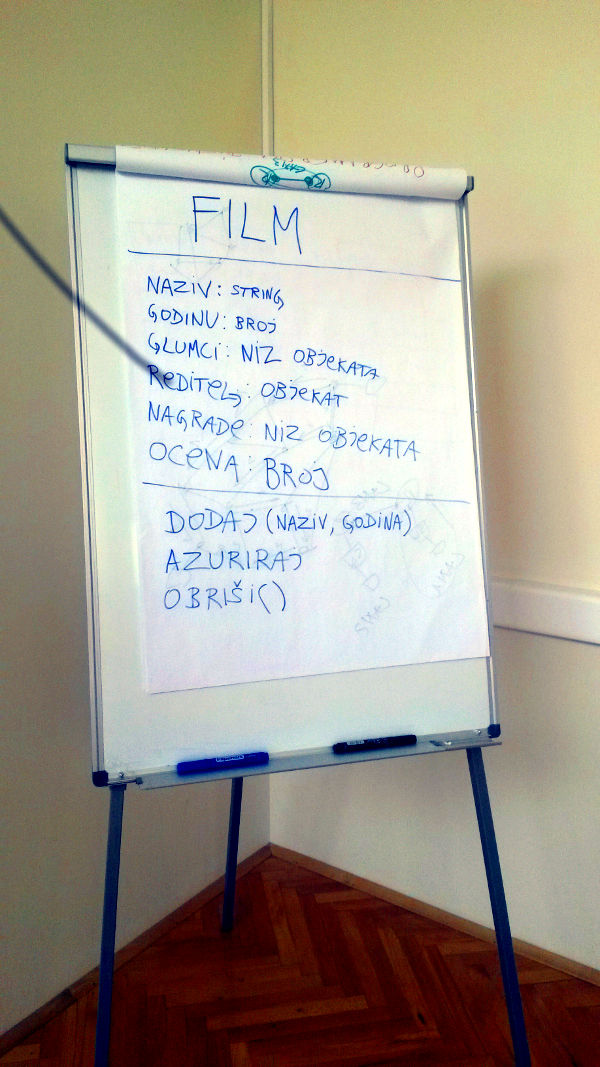 FILM
NAZIV: STRING
GODINU: BROJ
GLUMCI: NIZ OBJEKATA
REDITELJ: OBJEKAT
NAGRADE: NIZ OBJEKATA
OCENA: BROJ
DODAJ (NAZIV, GODINA)
AZURIRAJ
OBRIŠI()